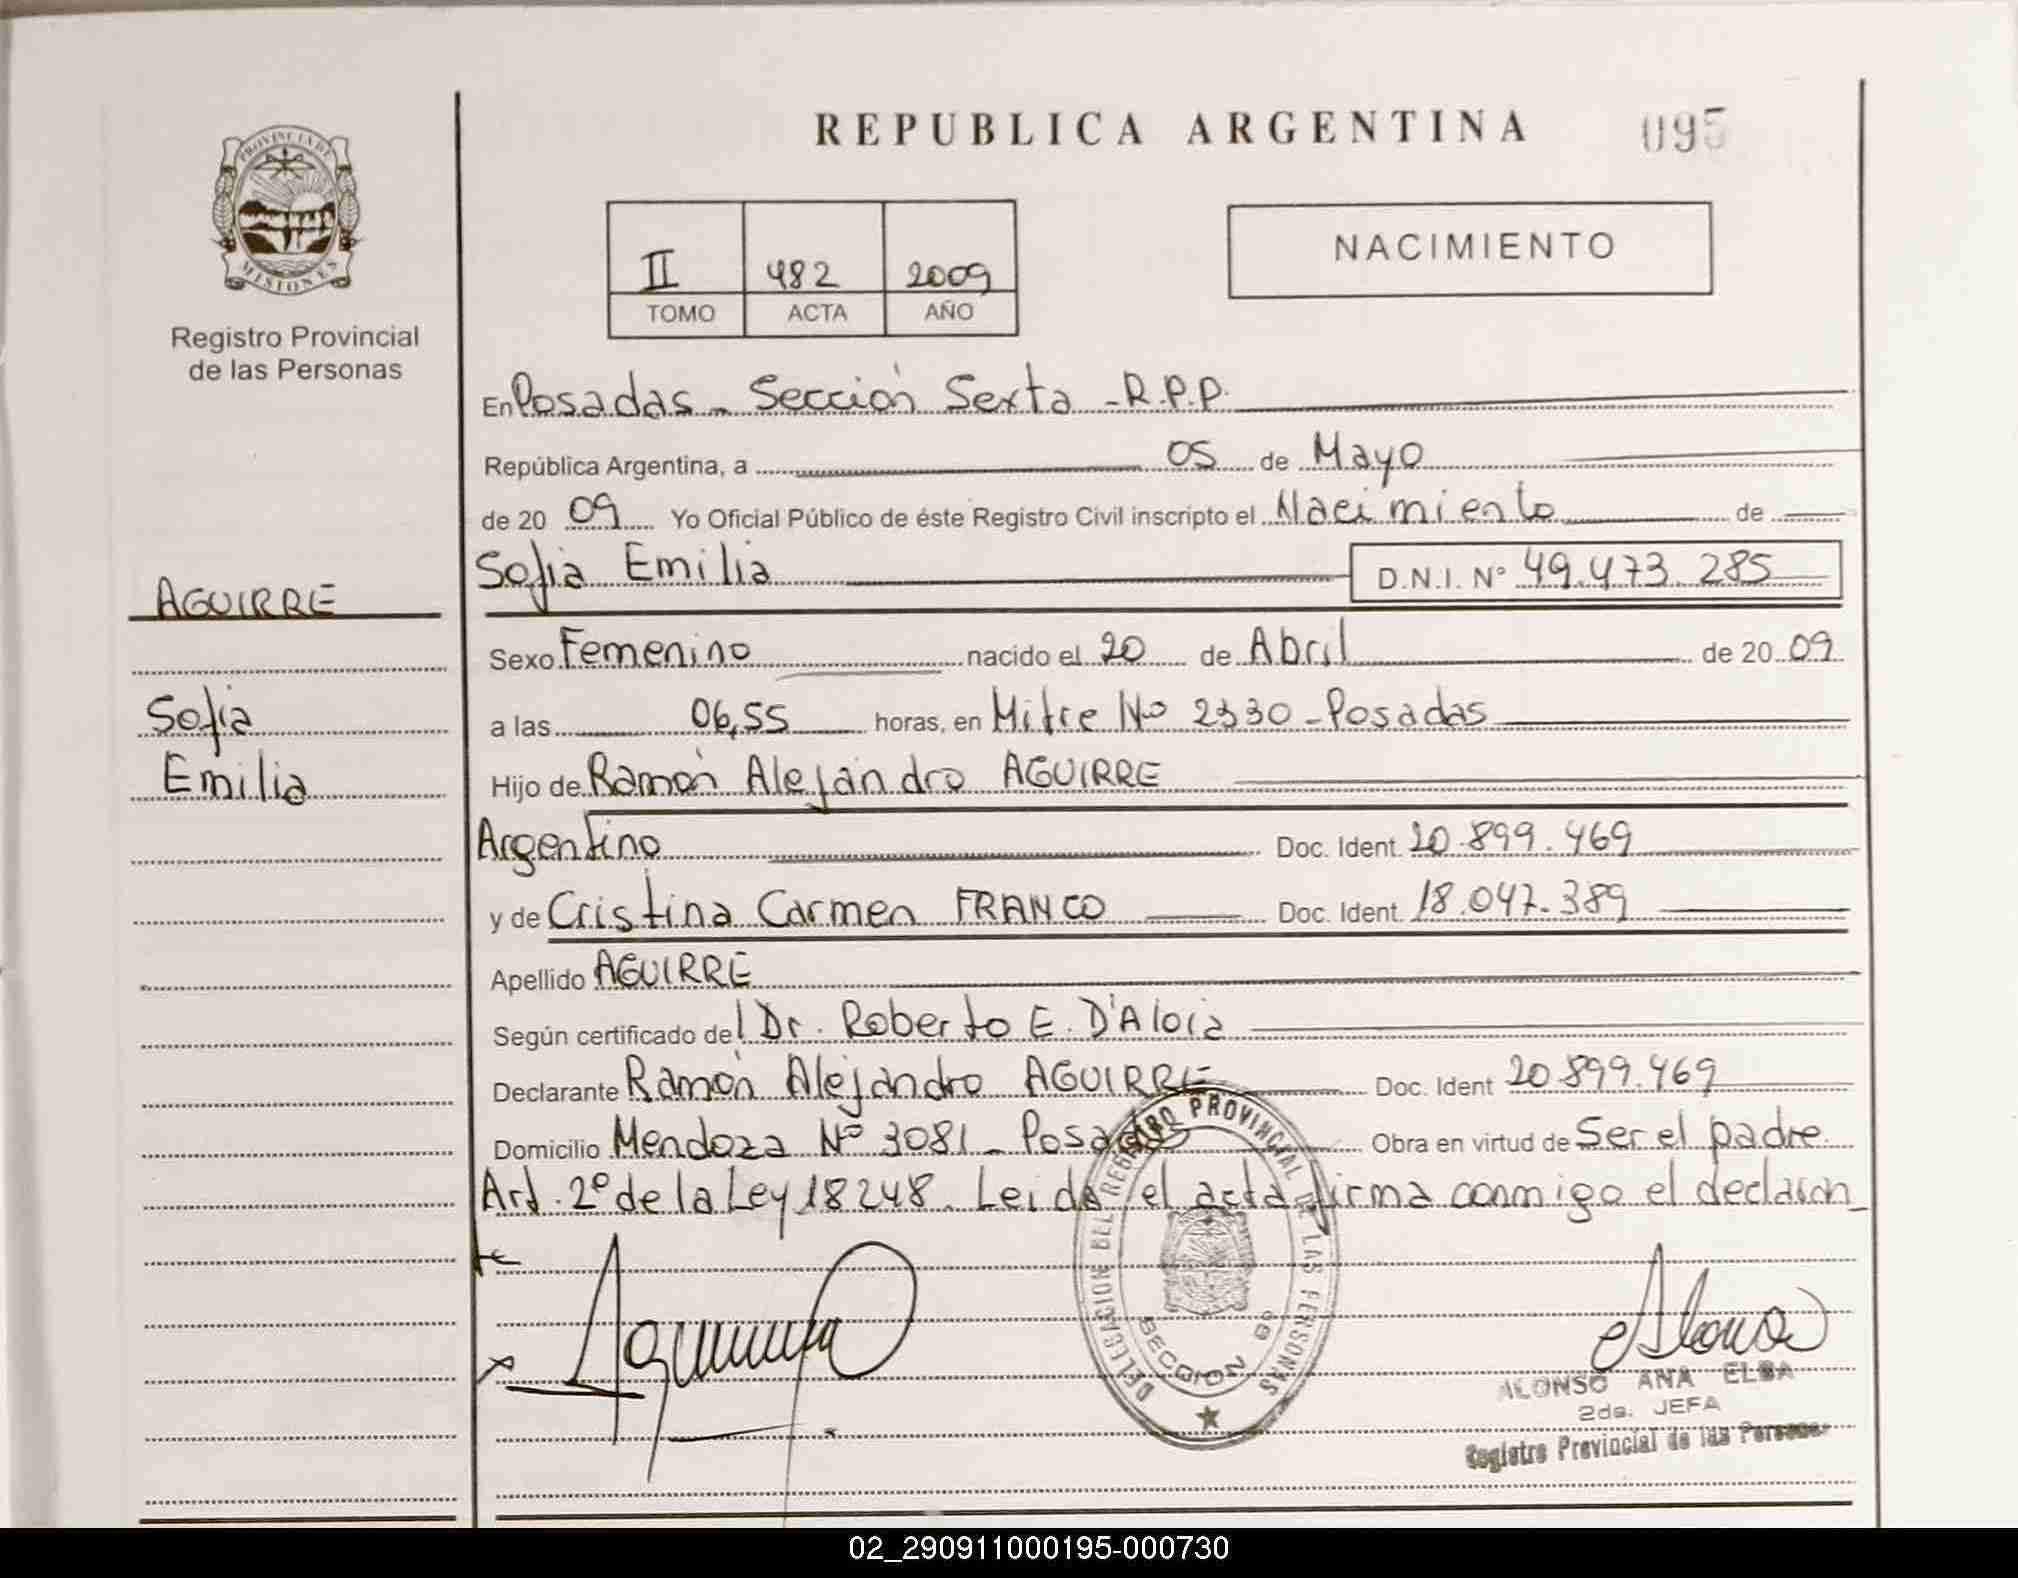 REPUBLICA ARGENTINA 095
PROVINCIA DE
MISIONES
Registro Provincial
de las Personas
II 482 2009
TOMO ACTA AÑO
NACIMIENTO
En Posadas - Sección Sexta - R.P.P.
República Argentina, a 05 de Mayo
de 20 09 Yo Oficial Público de éste Registro Civil inscripto el Nacimiento de
AGUIRRE
Sofia Emilia D.N.I. N° 49.473.285
Sexo Femenino nacido el 20 de Abril de 20 09
Sofia
a las 06,55 horas, en Mitre No 2330 - Posadas
Emilia
Hijo de Ramón Alejandro AGUIRRE
Argentino Doc. Ident. 20.899.469
y de Cristina Carmen FRANCO Doc. Ident. 18.047.389
Apellido AGUIRRE
Según certificado del Dr. Roberto E. D'Aloia
Declarante Ramón Alejandro AGUIRRE Doc. Ident 20.899.469
Domicilio Mendoza Nº 3081 - Posadas Obra en virtud de Ser el padre
Art. 2º de la Ley 18248. Leida el acta firma conmigo el declaran_
te
DELEGACION DEL REGISTRO PROVINCIAL DE LAS PERSONAS
SECCION 6a
ALONSO ANA ELBA
2da. JEFA
Registro Provincial de las Personas
02_290911000195-000730